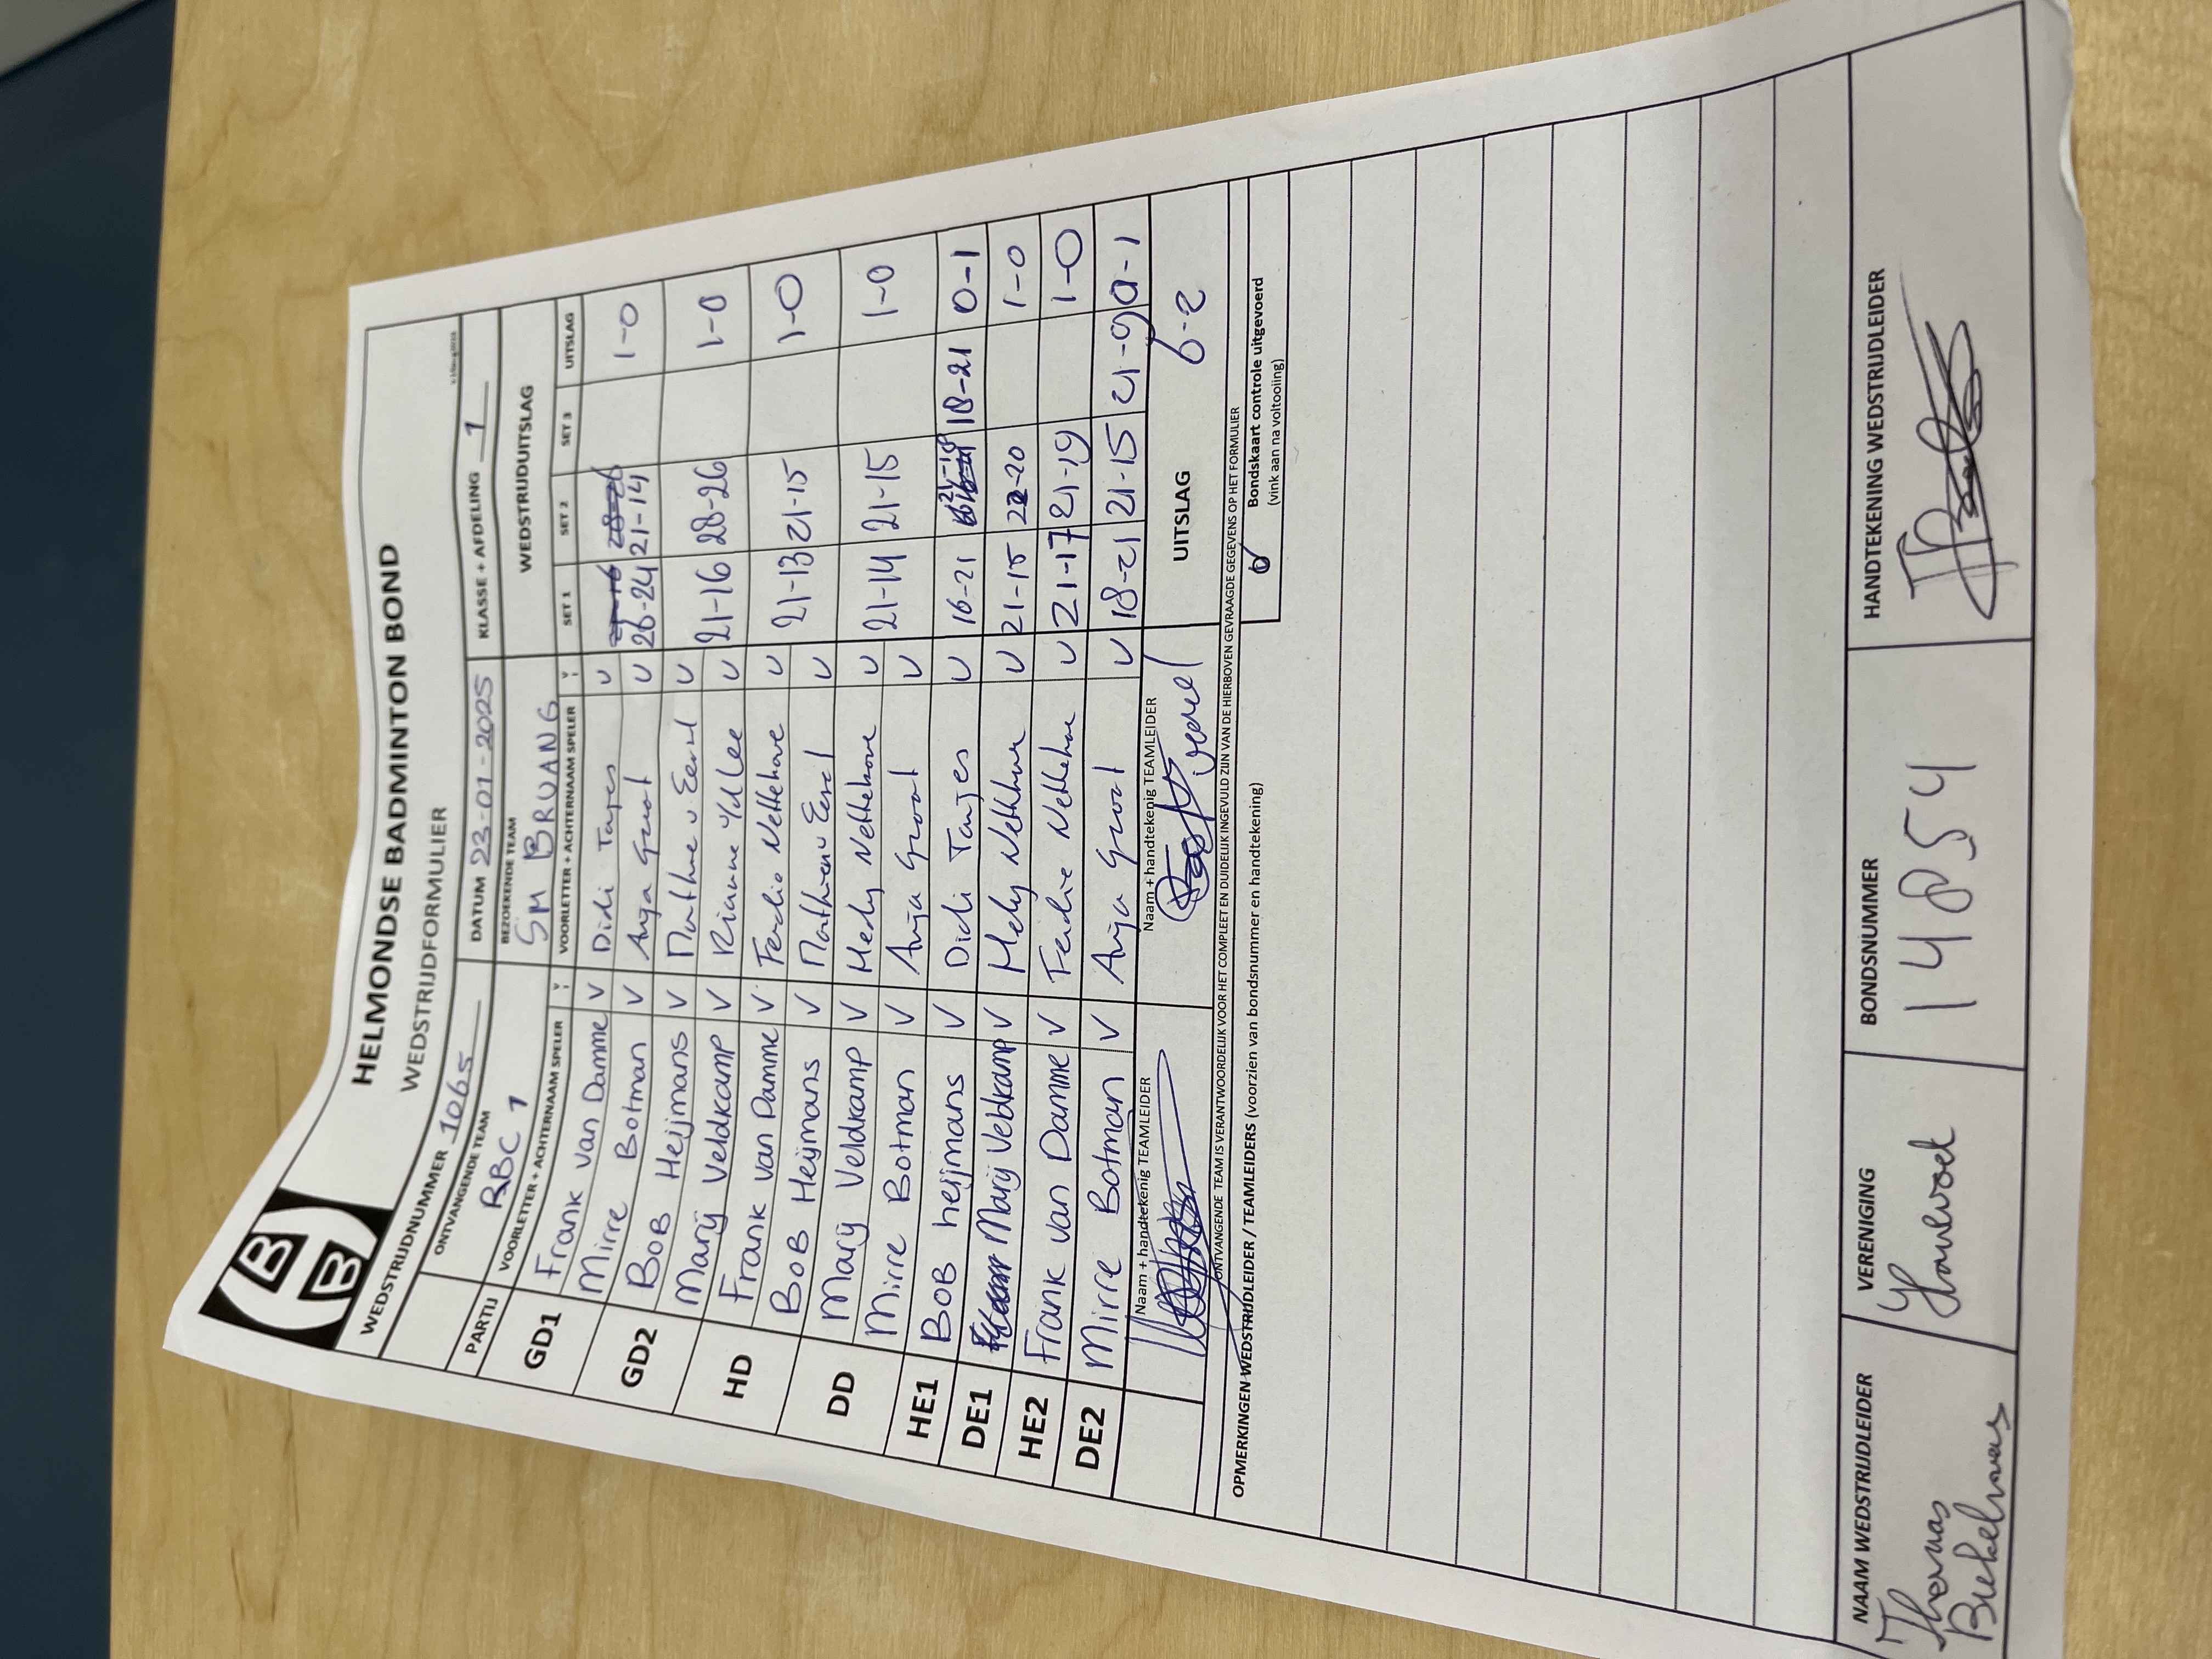 HBB
HELMONDSE BADMINTON BOND
WEDSTRIJDFORMULIER
WEDSTRIJDNUMMER 1065 DATUM 23-01-2025 KLASSE + AFDELING 1
ONTVANGENDE TEAM BEZOEKENDE TEAM WEDSTRIJDUITSLAG
RBC 1 SM BRUANG
PARTIJ VOORLETTER + ACHTERNAAM SPELER V VOORLETTER + ACHTERNAAM SPELER V SET 1 SET 2 SET 3 UITSLAG
GD1 Frank van Damme V Didi Tanjes V 21-16 28-26
Mirre Botman V Anja Groot V 26-24 21-14 1-0
GD2 BOB Heijmans V Mathieu v. Eersel V
Marij Veldkamp V Rianne v/d Lee V 21-16 28-26 1-0
HD Frank van Damme V Ferdie Nettekove V
BOB Heijmans V Mathieu v Eersel V 21-13 21-15 1-0
DD Marij Veldkamp V Hedy Nettekove V
Mirre Botman V Anja Groot V 21-14 21-15 1-0
HE1 BOB heijmans V Didi Tanjes V 16-21 18-21 0-1
DE1 Marij Veldkamp V Hedy Nettekove V 21-15 22-20 1-0
HE2 Frank van Damme V Ferdie Nettekove V 21-17 21-19 1-0
DE2 Mirre Botman V Anja Groot V 18-21 21-15 21-9 0-1
Naam + handtekenig TEAMLEIDER Naam + handtekenig TEAMLEIDER UITSLAG 6-2
ONTVANGENDE TEAM IS VERANTWOORDELIJK VOOR HET COMPLEET EN DUIDELIJK INGEVULD ZIJN VAN DE HIERBOVEN GEVRAAGDE GEGEVENS OP HET FORMULIER
OPMERKINGEN WEDSTRIJDLEIDER / TEAMLEIDERS (voorzien van bondsnummer en handtekening) Bondskaart controle uitgevoerd
(vink aan na voltooiing)
NAAM WEDSTRIJDLEIDER VERENIGING BONDSNUMMER HANDTEKENING WEDSTRIJDLEIDER
Thomas 14854